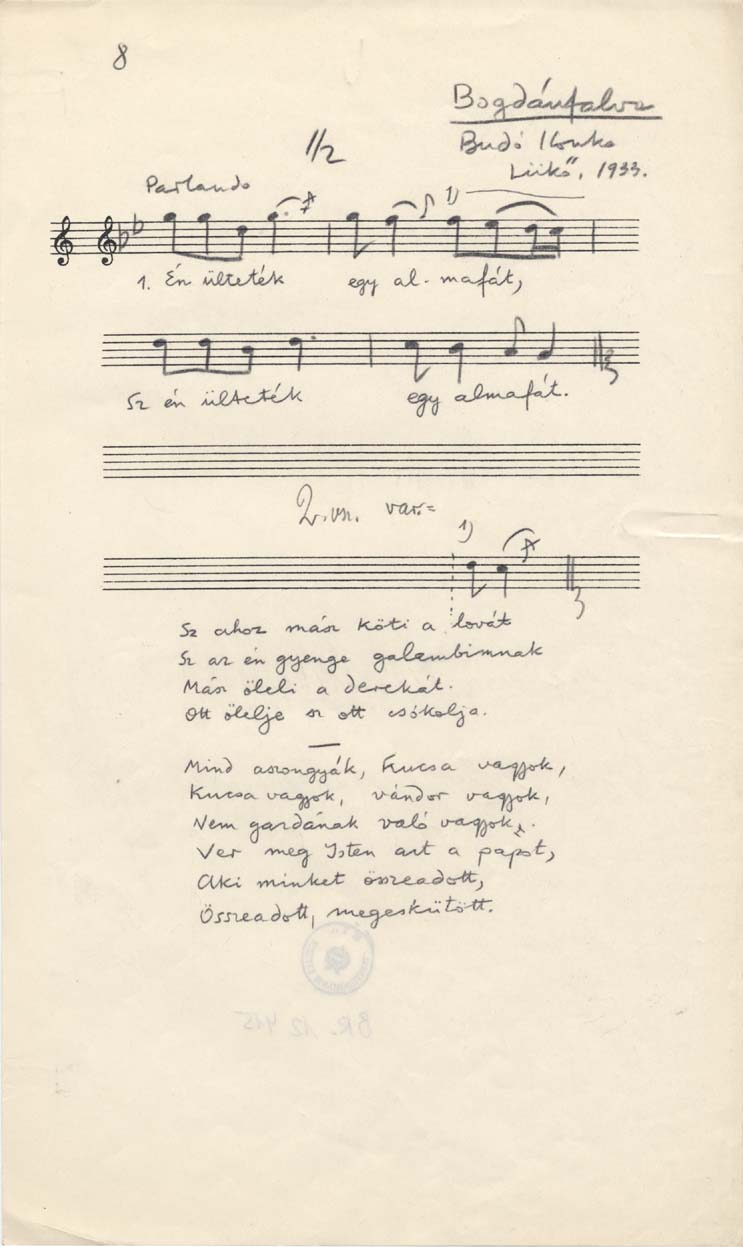 8
Bogdánfalva
Budó Ilonka
Lükő, 1933.
1/2
Parlando
1)
1. Én ülteték egy al- mafát,
Sz én ülteték egy almafát.
2. vsz. var.=
1)
Sz ahoz mász köti a lovát
Sz az én gyenge galambimnak
Mász öleli a derekát.
Ott ölelje sz ott csókolja.
Mind aszongyák, kucsa vagyok,
Kucsa vagyok, vándor vagyok,
Nem gazdának való vagyok.
Ver meg Isten azt a papot,
Aki minket összeadott,
Összeadott, megeskütött.
BR. 12 415